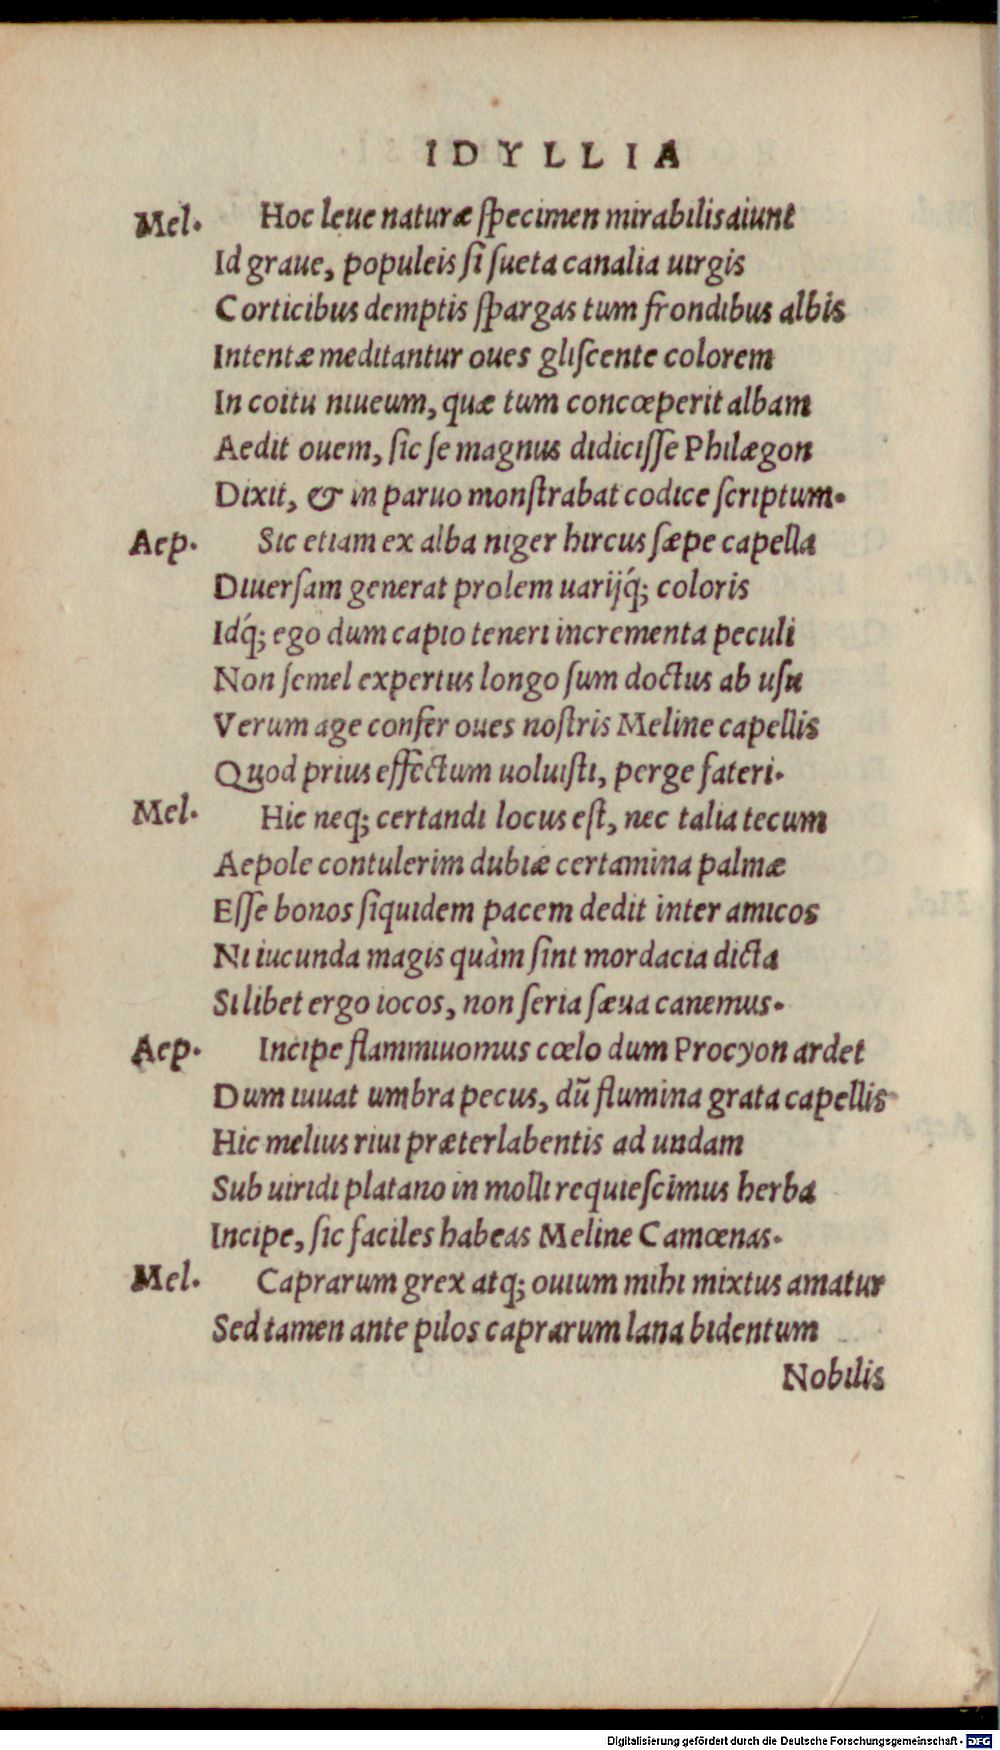 IDYLLIA
Mel. Hoc leue naturæ ſpecimen mirabilis aiunt
Id graue, populeis ſi ſueta canalia uirgis
Corticibus demptis ſpargas tum frondibus albis
Intentæ meditantur oues gliſcente colorem
In coitu niueum, quæ tum concœperit albam
Aedit ouem, ſic ſe magnus didiciſſe Philægon
Dixit, & in paruo monſtrabat codice ſcriptum.
Aep. Sic etiam ex alba niger hircus ſæpe capella
Diuerſam generat prolem uarijq́; coloris
Idq́; ego dum capio teneri incrementa peculi
Non ſemel expertus longo ſum doctus ab uſu
Verum age confer oues noſtris Meline capellis
Quod prius effectum uoluiſti, perge fateri.
Mel. Hic neq; certandi locus eſt, nec talia tecum
Aepole contulerim dubiæ certamina palmæ
Eſſe bonos ſiquidem pacem dedit inter amicos
Ni iucunda magis quàm ſint mordacia dicta
Si libet ergo iocos, non ſeria ſæua canemus.
Aep. Incipe flammiuomus cœlo dum Procyon ardet
Dum iuuat umbra pecus, dū flumina grata capellis
Hic melius riui præterlabentis ad undam
Sub uiridi platano in molli requieſcimus herba
Incipe, ſic faciles habeas Meline Camœnas.
Mel. Caprarum grex atq; ouium mihi mixtus amatur
Sed tamen ante pilos caprarum lana bidentum
Nobilis
Digitalisierung gefördert durch die Deutsche Forschungsgemeinschaft - DFG